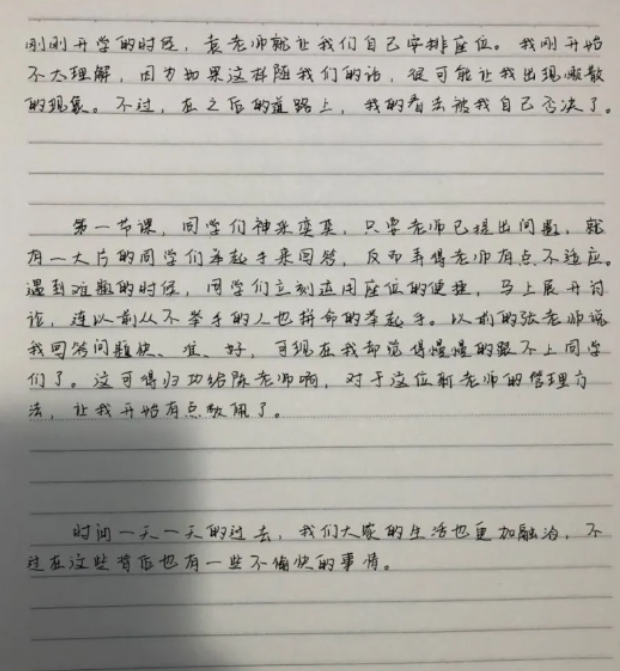 刚刚开学的时候，袁老师就让我们自己安排座位。我刚开始
不太理解，因为如果这样随我们的话，很可能让我出现嘶散
的现象。不过，在之后的道路上，我的看法被我自己否决了。
第一节课，同学们神采奕奕，只要老师已提出问题，就
有一大片的同学们举起手来回答，反而弄得老师有点不适应。
遇到难题的时候，同学们立刻运用座位的便捷，马上展开讨
论，连以前从不举手的人也拼命的举起手。以前的张老师说
我回答问题快、准、好，可现在我却觉得慢慢的跟不上同学
们了。这可得归功给陈老师啊，对于这位新老师的管理方
法，让我开始有点敬佩了。
时间一天一天的过去，我们大家的生活也更加融洽，不
过在这些背后也有一些不愉快的事情。